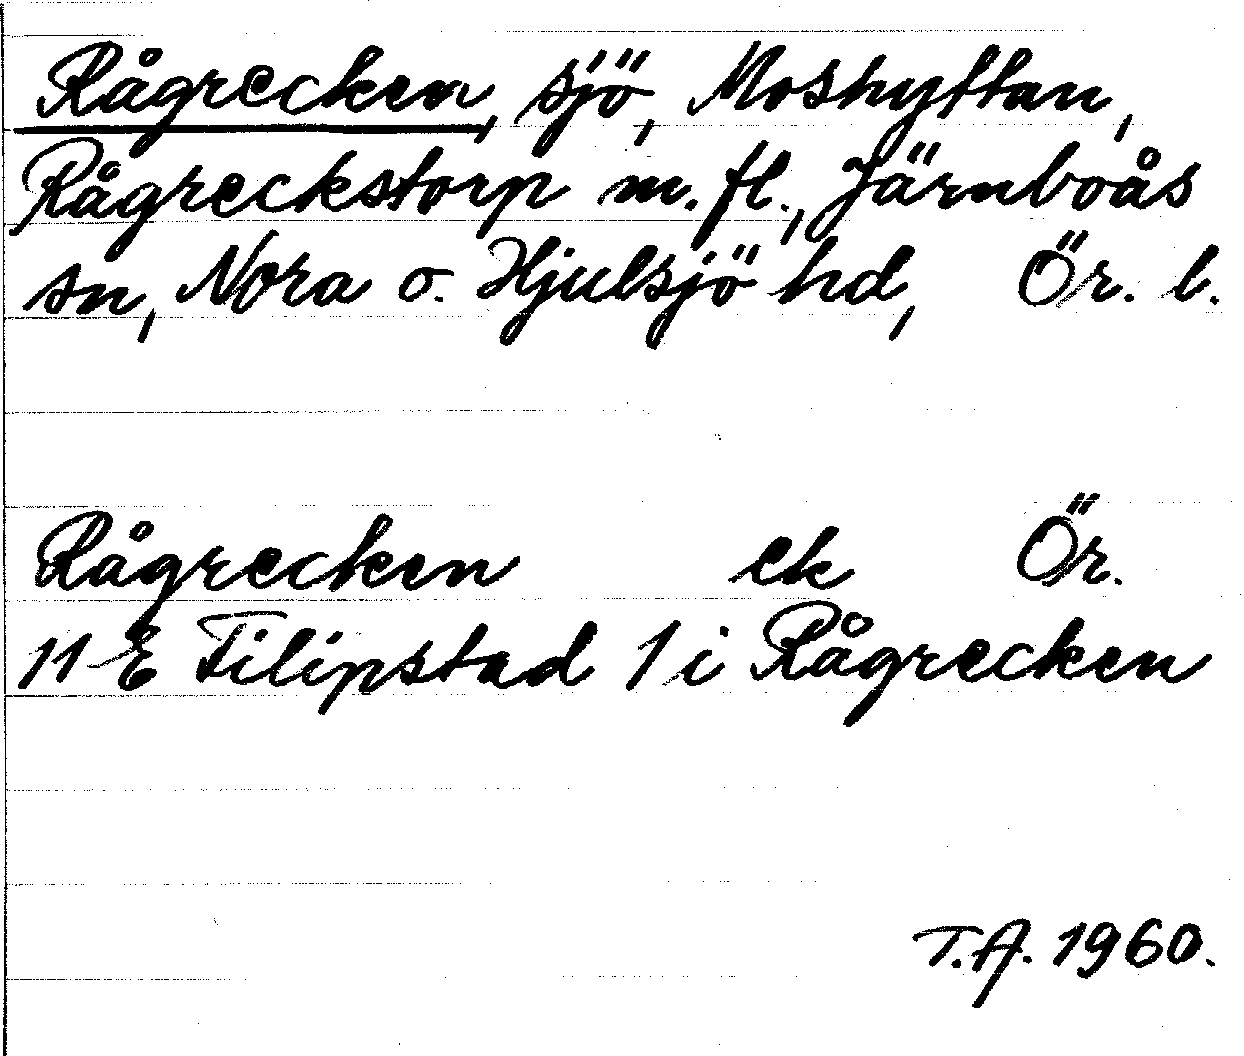 Rågrecken, sjö, Moshyttan,
Rågreckstorp m.fl., Järnboås
sn, Nora o. Hjulsjö hd, Ör. l.
Rågrecken ek Ör.
11 E Filipstad 1 i Rågrecken
T.A. 1960.